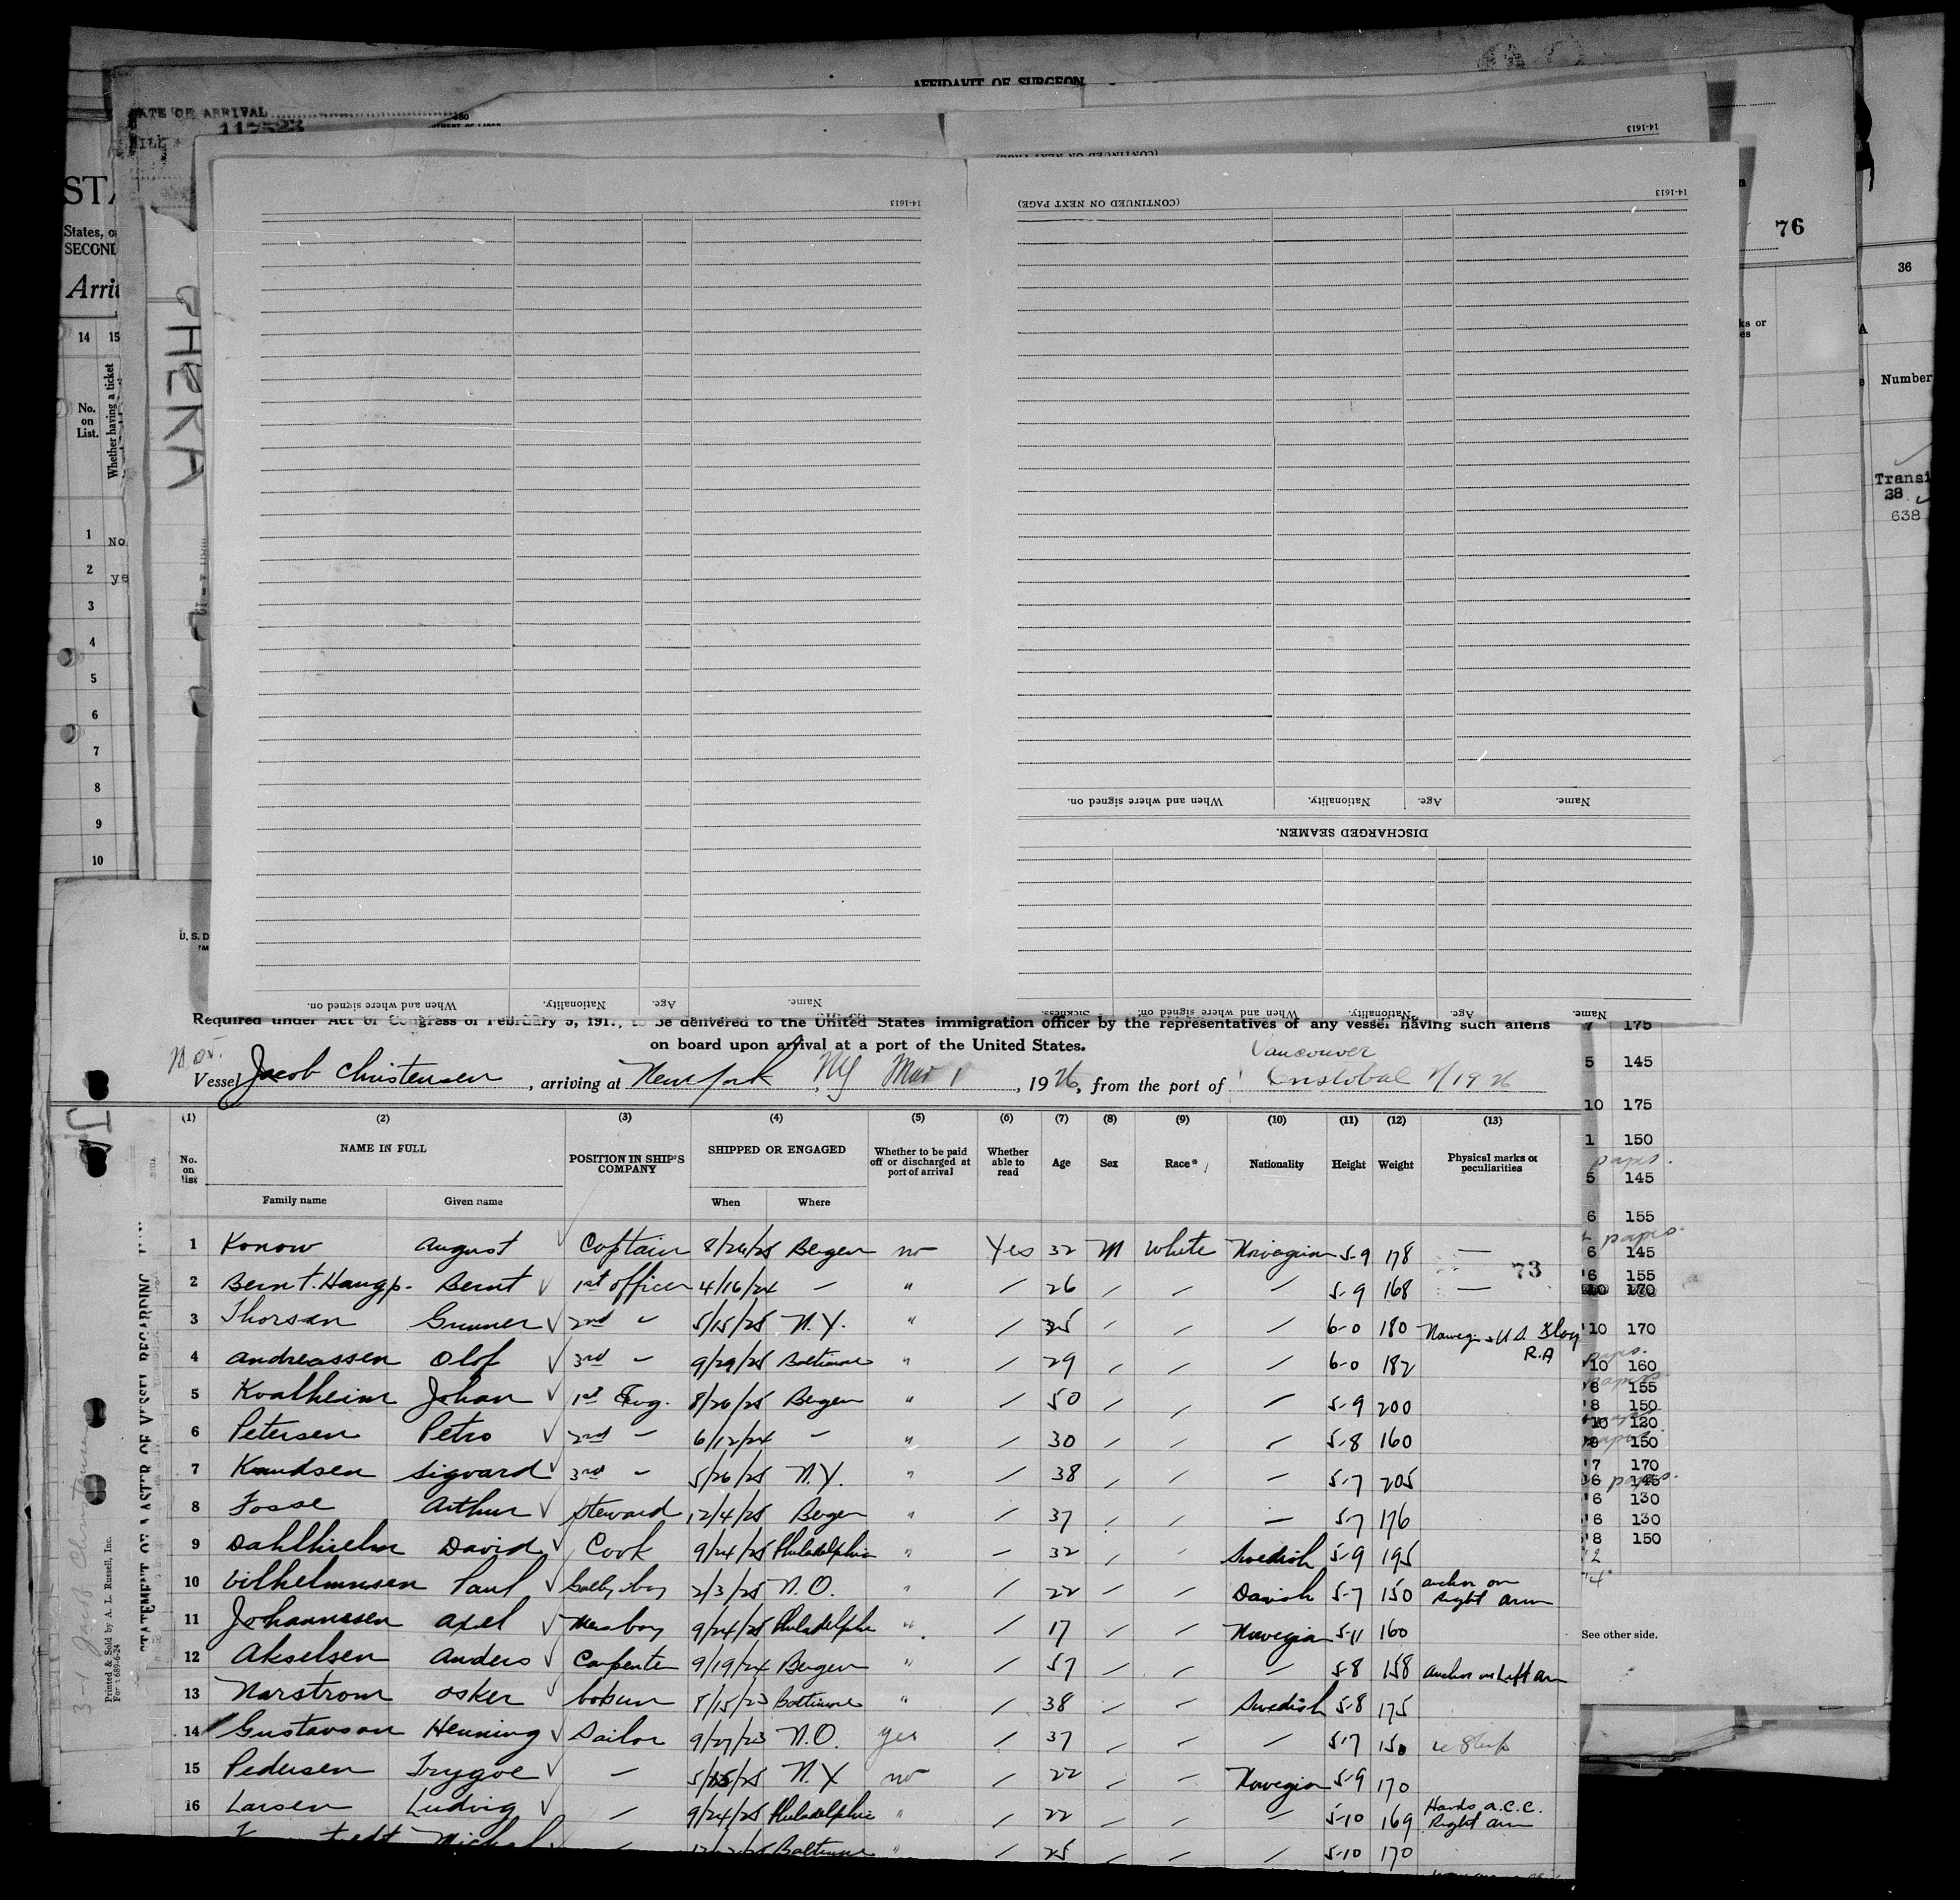 AFFIDAVIT OF SURGEON
ATE OF ARRIVAL
14-1613
(CONTINUED ON NEXT PAGE)
14-1613
(CONTINUED ON NEXT PAGE)
14-1613
76
STA
States, o
SECOND
Arri
36
14 15
No. on List.
Whether having a ticket
ks or
es
Number
PHEKA
Transi
38
638
1 No
2 ye
3
4
5
6
7
8
9
10
Name. Age. Nationality. When and where signed on.
DISCHARGED SEAMEN.
U. S. D
Name. Age. Nationality. When and where signed on.
Name. Age. Nationality. When and where signed on. Sickness.
Required under Act of Congress of February 5, 1917, to be delivered to the United States immigration officer by the representatives of any vessel having such aliens
on board upon arrival at a port of the United States.
Nor.
Vancouver
Vessel Jacob Christensen, arriving at New York, NY Mar 1, 1926, from the port of Cristobal 2/19 26
(1) (2) (3) (4) (5) (6) (7) (8) (9) (10) (11) (12) (13)
No. on list NAME IN FULL POSITION IN SHIP'S COMPANY SHIPPED OR ENGAGED Whether to be paid off or discharged at port of arrival Whether able to read Age Sex Race* Nationality Height Weight Physical marks or peculiarities
Family name Given name When Where
1 Konow August Captain 8/26/25 Bergen no Yes 32 M White Norwegian 5-9 178 —
73
2 Bernt. Haugp. Bernt 1st officer 4/16/24 — " / 26 / / / 5-9 168 —
3 Thorsen Gunner 2nd " 5/15/25 N.Y. " / 25 / / / 6-0 180 Norwegin & U S Flag R.A
4 Andreassen Olof 3rd " 9/29/25 Baltimore " / 29 / / / 6-0 182
5 Kvalheim Johan 1st Eng. 8/26/25 Bergen " / 50 / / / 5-9 200
6 Petersen Petro 2nd " 6/12/24 — " / 30 / / / 5-8 160
7 Knudsen Sigvard 3rd " 5/26/25 N.Y. " / 38 / / / 5-7 205
8 Fosse Arthur Steward 12/4/25 Bergen " / 37 / / — 5-7 176
9 Dahlhielm David Cook 9/24/25 Philadelphia " / 32 / / Swedish 5-9 195
10 Vilhelmnsen Paul Gally boy 2/3/25 N.O. " / 22 / / Danish 5-7 150 anchor on Right arm
11 Johannesen Axel Mess boy 9/24/25 Philadelphi " / 17 / / Norwegian 5-11 160
12 Akselsen Anders Carpenter 9/19/24 Bergen " / 57 / / / 5-8 158 anchor on Left arm
13 Narstrom Osker bosun 8/15/23 Baltimore " / 38 / / Swedish 5-8 175
14 Gustavson Henning Sailor 9/27/23 N.O. yes / 37 / / / 5-7 150 reship
15 Pedersen Trygve — 5/15/25 N.Y no / 22 / / Norwegian 5-9 170
16 Larsen Ludvig / 9/24/25 Philadelphia " / 22 / / / 5-10 169 Hands a.c.c. Right arm
Michal / Baltimore " / 25 / / / 5-10 170
7 175
5 145
10 175
1 150
paps.
5 145
6 155
paps
6 145
6 155
10 170
10 170
10 160
6 155
8 150
10 120
150
7 170
6 145
paps.
6 130
6 130
8 150
See other side.
STATEMENT OF MASTER OF VESSEL REGARDING
3-1 Jacob Christensen
Printed & Sold by A. L. Russell, Inc.
Form 689-6-24